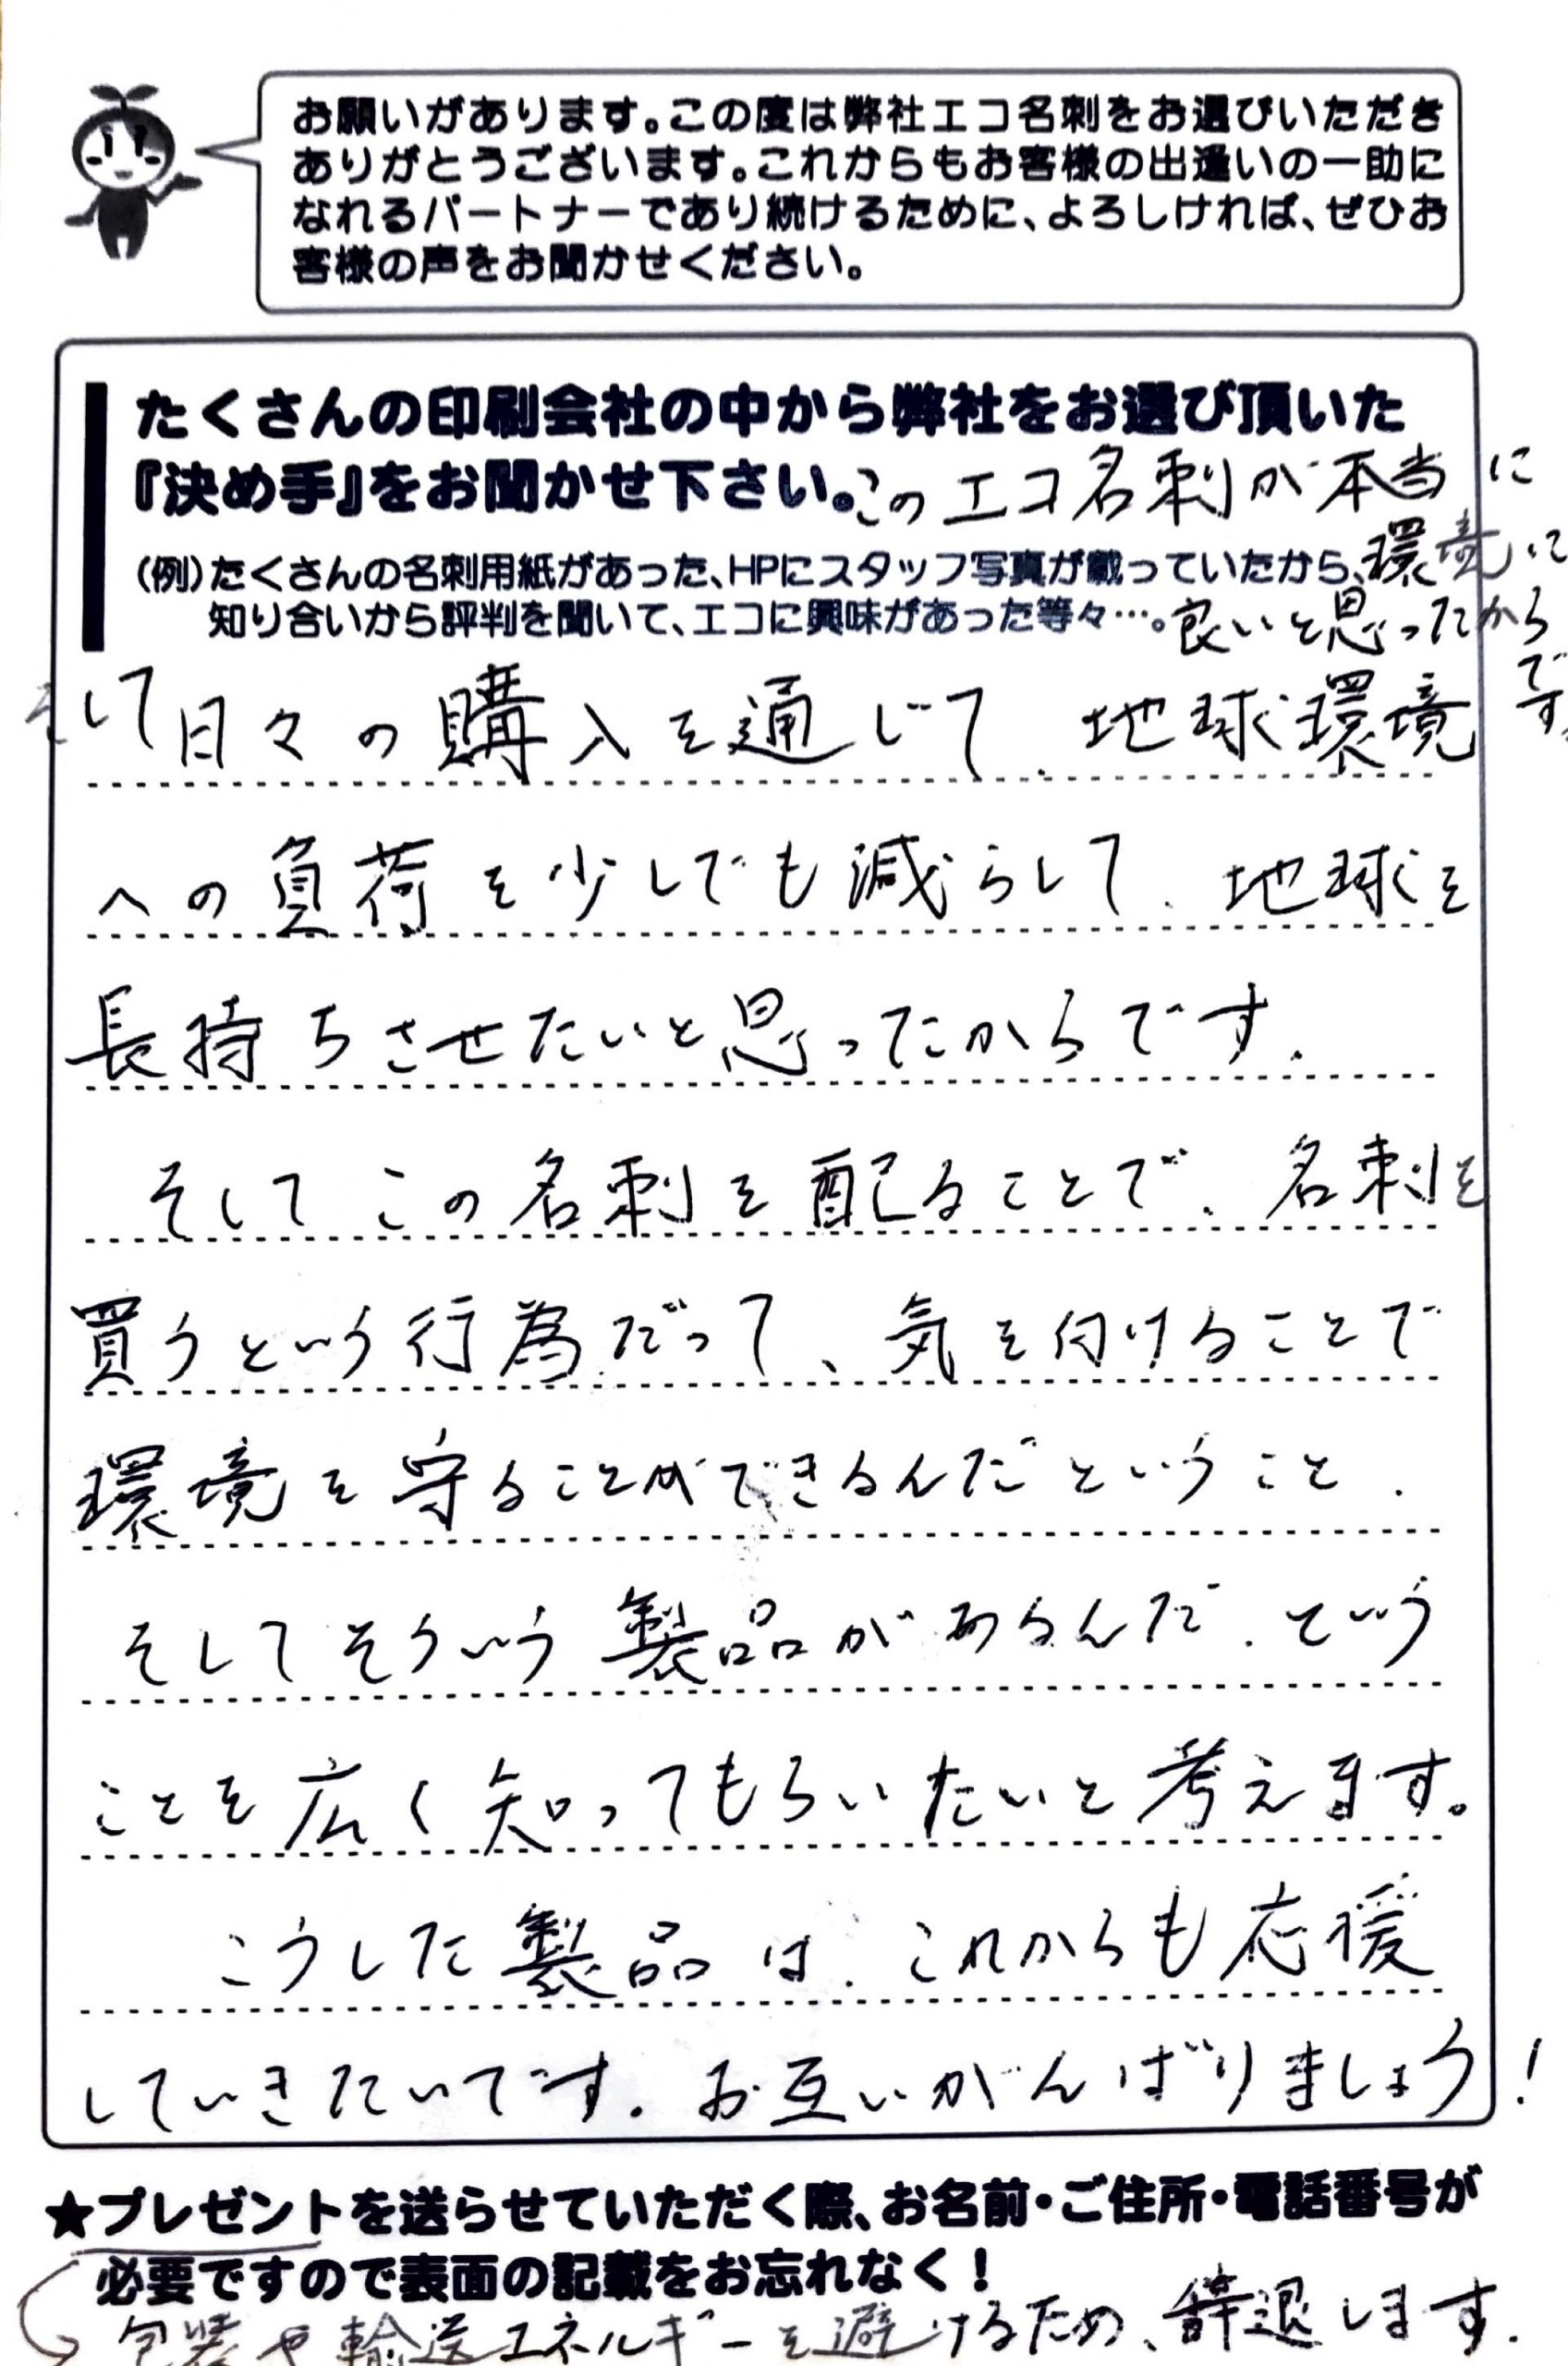 お願いがあります。この度は弊社エコ名刺をお選びいただき
ありがとうございます。これからもお客様の出逢いの一助に
なれるパートナーであり続けるために、よろしければ、ぜひお
客様の声をお聞かせください。
たくさんの印刷会社の中から弊社をお選び頂いた
『決め手』をお聞かせ下さい。
(例)たくさんの名刺用紙があった、HPにスタッフ写真が載っていたから、
知り合いから評判を聞いて、エコに興味があった等々…。
このエコ名刺が本当に
環境に
良いと思ったから
です。
そして日々の購入を通じて、地球環境
への負荷を少しでも減らして、地球を
長持ちさせたいと思ったからです。
そしてこの名刺を配ることで、名刺を
買うという行為だって、気を付けることで
環境を守ることができるんだということ、
そしてそういう製品があるんだ、という
ことを広く知ってもらいたいと考えます。
こうした製品は、これからも応援
していきたいです。お互いがんばりましょう!
★プレゼントを送らせていただく際、お名前・ご住所・電話番号が
必要ですので表面の記載をお忘れなく!
包装や輸送エネルギーを避けるため、辞退します。